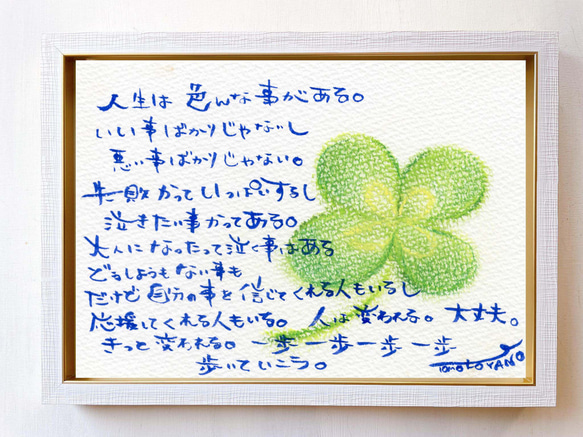 人生は 色んな事がある。
いい事ばかりじゃないし
悪い事ばかりじゃない。
失敗かっていっぱいするし
泣きたい事かってある。
大人になったって泣く事はある
どうしようもない事も
だけど自分の事を信じてくれる人もいるし
応援してくれる人もいる。 人は変われる。 大丈夫。
きっと変われる。 一歩一歩一歩一歩
歩いていこう。
tomoko YANO